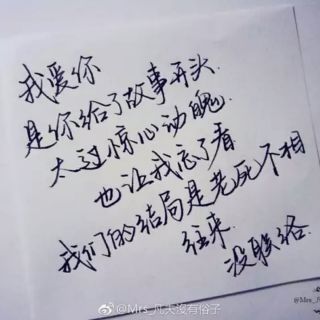 我爱你
是你给了故事开头
太过惊心动魄
也让我忘了看
我们的结局是老死不相
往来
没联络
@Mrs_凡夫没有俗子